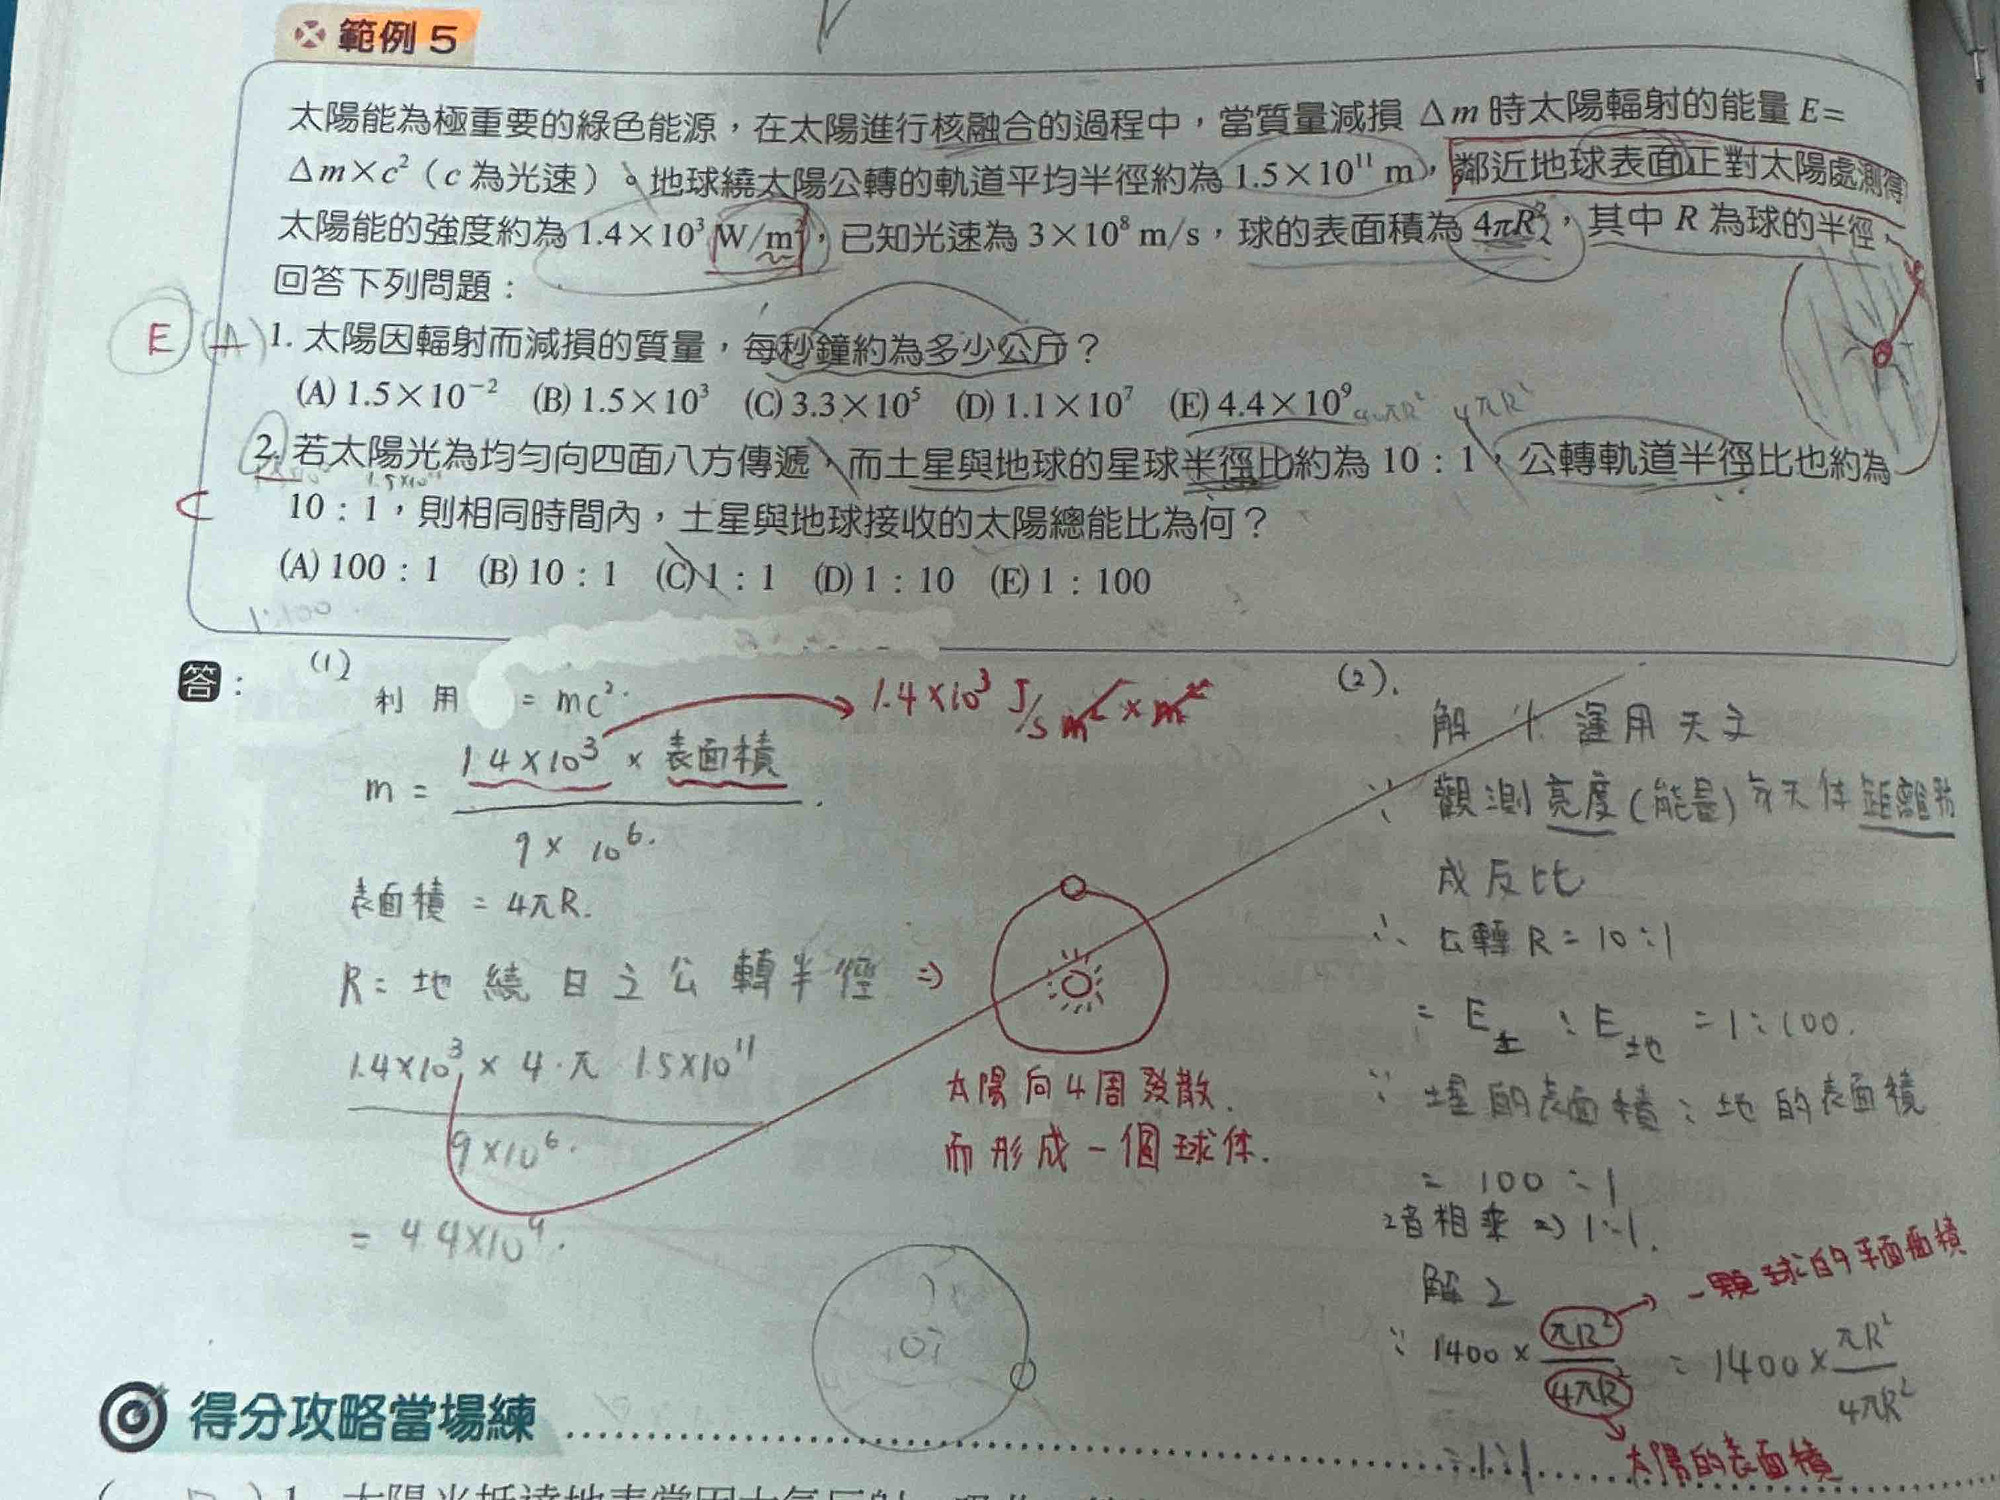 範例 5
太陽能為極重要的綠色能源，在太陽進行核融合的過程中，當質量減損 Δm 時太陽輻射的能量 E=
Δm×c²（c 為光速）。地球繞太陽公轉的軌道平均半徑約為 1.5×10¹¹ m，鄰近地球表面正對太陽處測得
太陽能的強度約為 1.4×10³ W/m²，已知光速為 3×10⁸ m/s，球的表面積為 4πR²，其中 R 為球的半徑，
回答下列問題：
E (A) 1. 太陽因輻射而減損的質量，每秒鐘約為多少公斤？
(A) 1.5×10⁻² (B) 1.5×10³ (C) 3.3×10⁵ (D) 1.1×10⁷ (E) 4.4×10⁹
4πR²
2. 若太陽光為均勻向四面八方傳遞，而土星與地球的星球半徑比約為 10：1，公轉軌道半徑比也約為
1.5×10¹¹
C 10：1，則相同時間內，土星與地球接收的太陽總能比為何？
(A) 100：1 (B) 10：1 (C) 1：1 (D) 1：10 (E) 1：100
1:100
答：
(1)
利用 = mc².
1.4×10³ J/s m² × m²
m = 1.4×10³ × 表面積
9×10⁶.
表面積 = 4πR.
R = 地繞日之公轉半徑 ⇒
1.4×10³ × 4·π 1.5×10¹¹
9×10⁶.
= 4.4×10⁹.
太陽向4周發散.
而形成一個球体.
(2).
解 1. 運用天文
∵ 觀測亮度(能量)與天体距離
成反比
∴ 公轉 R = 10:1
= E土 : E地 = 1:100.
∵ 土星的表面積 : 地的表面積
= 100:1
2者相乘 ⇒ 1:1.
解 2
一顆球的平面面積
∵ 1400 × πR²/4πR² = 1400 × πR²/4πR²
= 1:1
太陽的表面積
得分攻略當場練